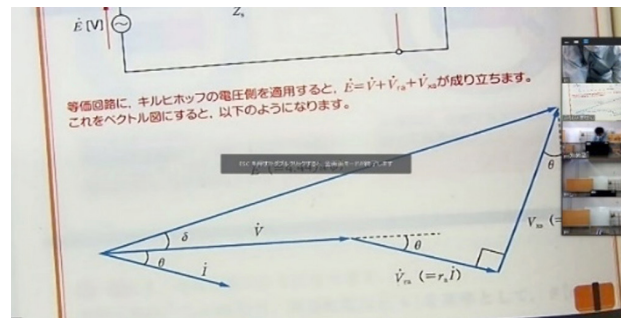 Ė [V]
Zs
等価回路に、キルヒホッフの電圧側を適用すると、Ė=V̇+V̇ra+V̇xsが成り立ちます。
これをベクトル図にすると、以下のようになります。
θ
δ
V̇
θ
θ
İ
V̇ra (=raİ)
Vxs (=